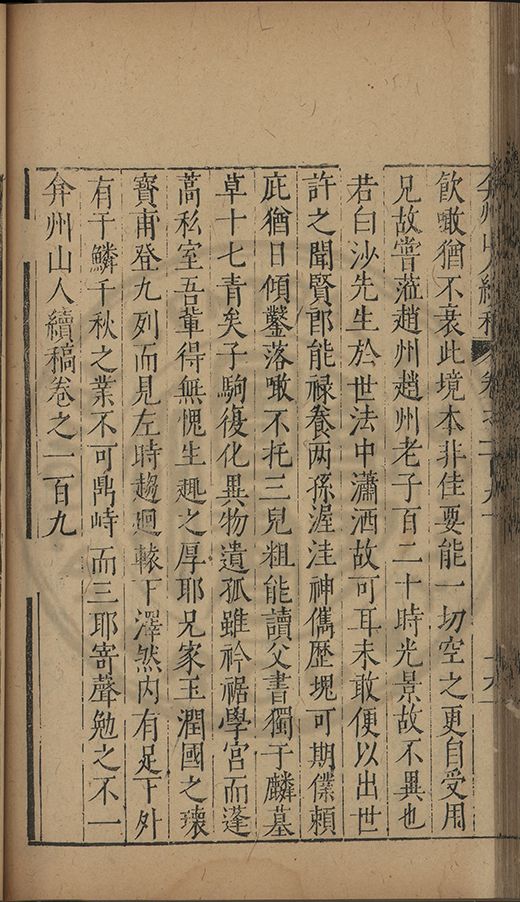 弇州山人續稿 卷之
飲噉猶不衰此境本非佳要能一切空之更自受用
兄故嘗蒞趙州趙州老子百二十時光景故不異也
若白沙先生於世法中瀟洒故可耳未敢便以出世
許之聞賢郎能祿養两孫渥洼神儁歷塊可期僕頼
庇猶日傾鑿落噉不托三兒粗能讀父書獨于麟墓
草十七青矣子駒復化異物遺孤雖衿裾學宮而蓬
蒿私室吾輩得無愧生趣之厚耶兄家玉潤國之瓌
寶甫登九列而見左時趨廻轅下澤然内有足下外
有于鱗千秋之業不可鼎峙而三耶寄聲勉之不一
弇州山人續稿卷之一百九